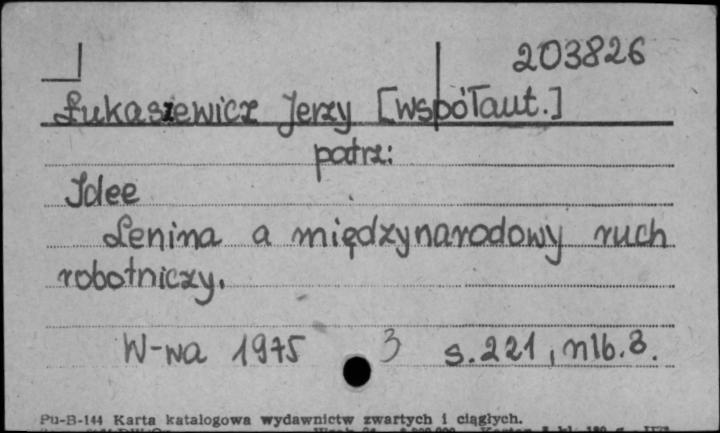 203826
Łukaszewicz Jerzy [współaut.]
patrz:
Idee
Lenina a międzynarodowy ruch
robotniczy.
W-wa 1975 3 s.221, nlb.3.
Pu-B-144 Karta katalogowa wydawnictw zwartych i ciągłych.